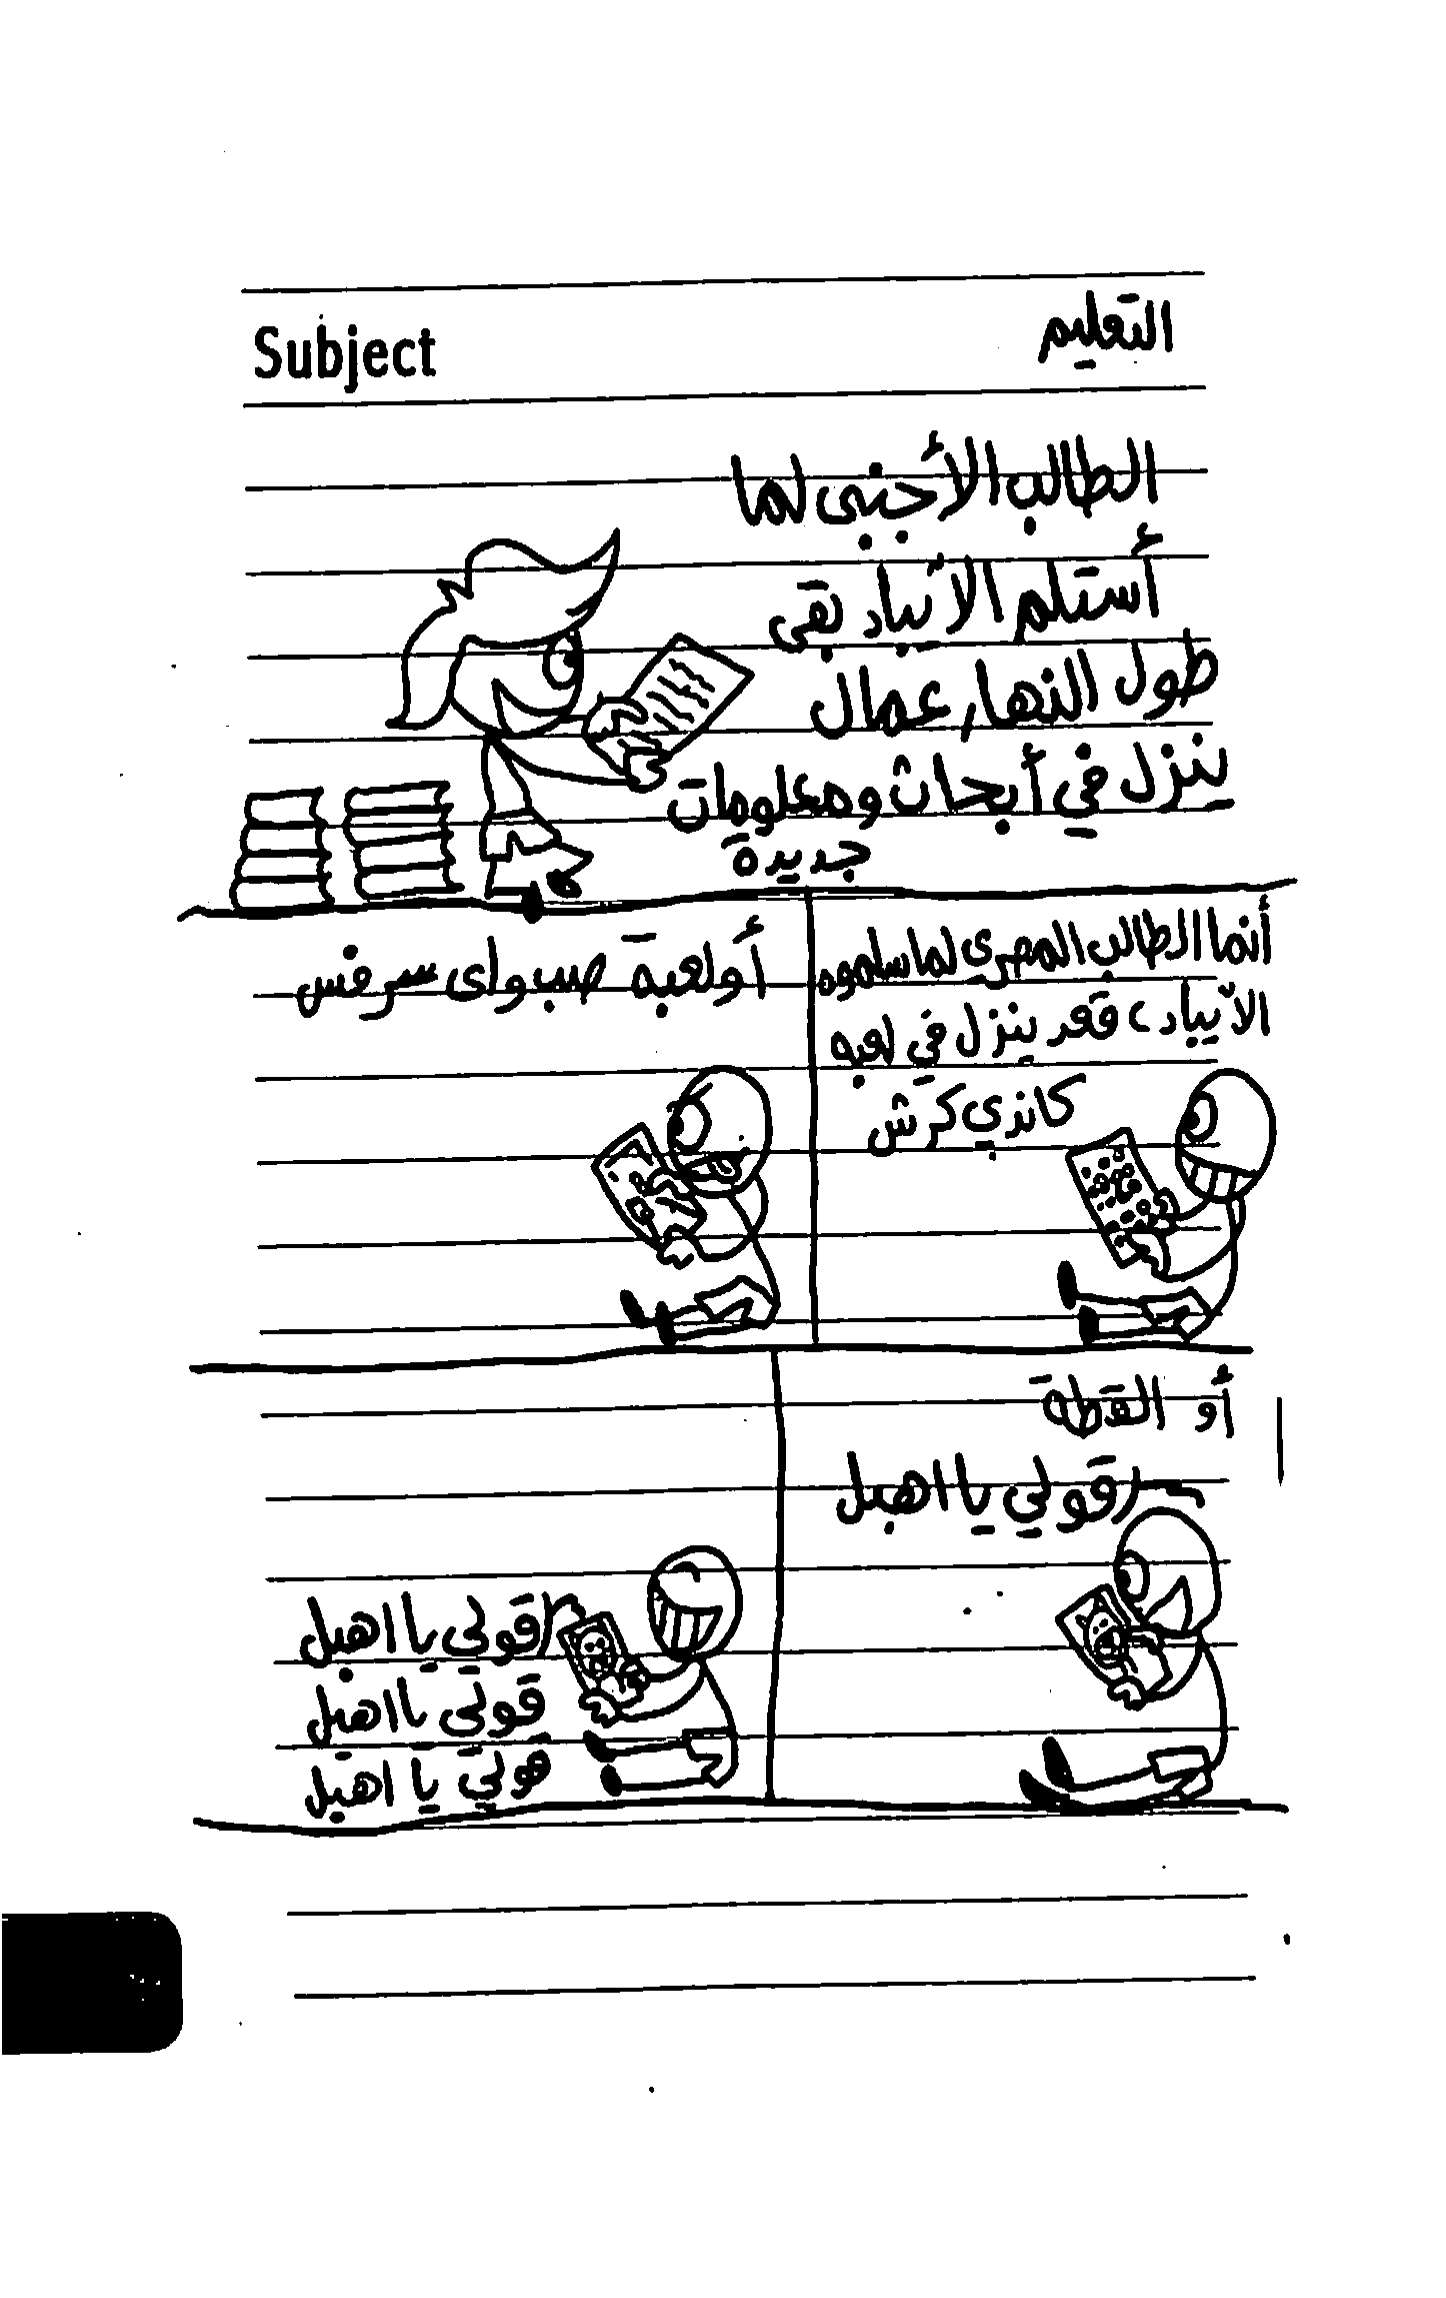 Subject التعليم
الطالب الأجنبى لما
أستلم الأيباد بقى
طول النهار عمال
ينزل في أبحاث ومعلومات
جديدة
أنما الطالب المصرى لما سلموه
الأيباد، قعد ينزل في لعبه
كاندي كرش
أو لعبة صب واى سرفس
أو القطة
قولي يا اهبل
قولي يا اهبل
قولي يا اهبل
قولي يا اهبل